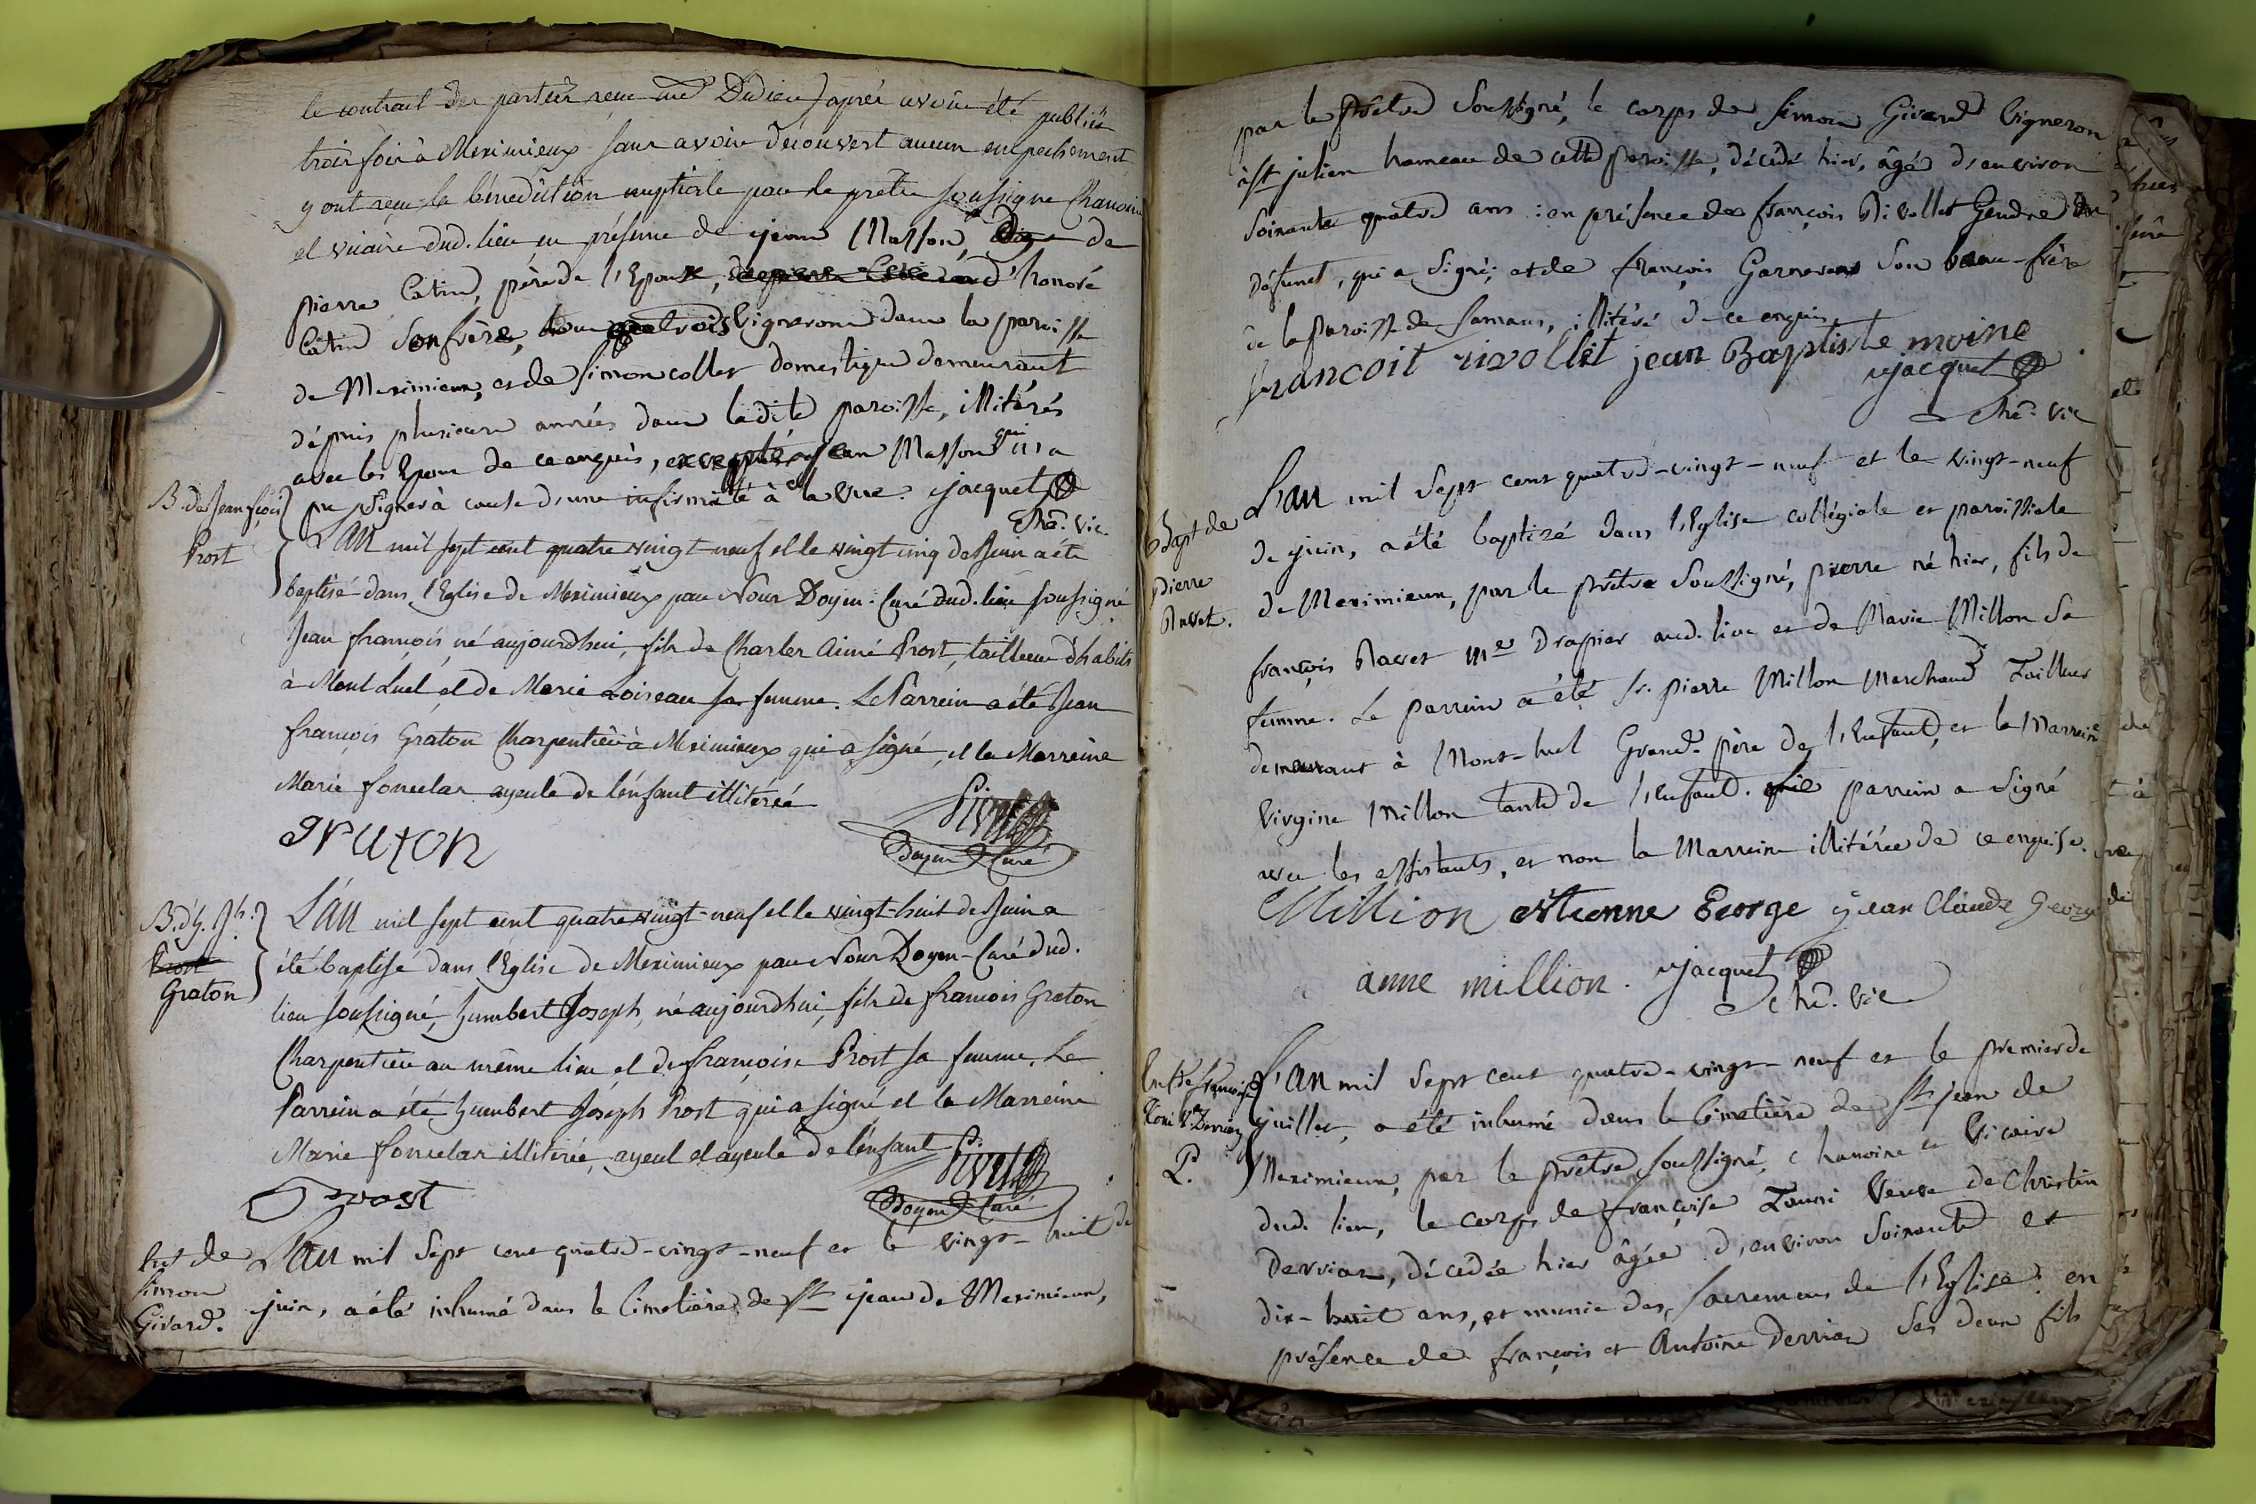 le contrait des parties reçu me Didieu) aprés avoir été publiés
trois fois à Meximieux sans avoir découvert aucun empechement
y ont reçu la bénédiction nuptiale par le prêtre soussigné Chanoine
et vicaire dud. lieu en présence de jean Masson, de
pierre Catin, père de l'Epouse, d'honoré
Catin son frère, trois Vignerons dans la paroisse
de Meximieux, et de Simon collet domestique demeurant
dépuis plusieurs années dans ladite paroisse, illitérés
avec les Epoux de ce enquis, excepté jean Masson qui n'a
pu signer à cause d'une infirmité à la vue. jacquet
Chne. Vic.
B. de Jean fçois
Prost
L'An mil sept cent quatre vingt neuf et le vingt cinq de Juin a été
baptisé dans l'Eglise de Meximieux par Nous Doyen-Curé dud. lieu soussigné
Jean françois, né aujourdhui, fils de Charles Aimé Prost, tailleur d'habits
à Mont Luel, et de Marie Loiseau sa femme. Le Parrein a été Jean
françois Graton Charpentier à Meximieux qui a signé, et la Marreine
Marie foncelas ayeule de l'enfant illiterée
graton
Doyen Curé
B. d'h. Jh.
Prost
Graton
L'An mil sept cent quatre vingt-neuf et le vingt-huit de Juin a
été baptisé dans l'Eglise de Meximieux par Nous Doyen-Curé dud.
lieu soussigné, humbert Joseph, né aujourdhui, fils de francois Graton
Charpentier au même lieu et de françoise Prost sa femme. Le
Parrein a été humbert Joseph Prost qui a signé et la Marreine
Marie foncelas illiterée, ayeul et ayeule de l'enfant
Prost
Doyen Curé
Ent de
Simon
Givard.
L'An mil sept cent quatre-vingt-neuf et le vingt-huit de
juin, a été inhumé dans le Cimetière de St jean de Meximieux,
par le prêtre soussigné, le corps de Simon Givard Vigneron
à St julien hameau de cette paroisse, décédé hier, âgé d'environ
soixante quatre ans : en présence de françois Rivollet Gendre du
défunct, qui a signé; et de françois Garneran son beau-frère
de la paroisse de Samans, illitéré de ce enquis.
francoit rivollit jean Baptiste moine
jacquet
Chne. Vic
Bapt de
pierre
Ravet.
L'an mil sept cent quatre-vingt-neuf et le vingt-neuf
de juin, a été baptizé dans l'Eglise collégiale et paroissiale
de Meximieux, par le prêtre soussigné, pierre né hier, fils de
françois Ravet Me Drapier aud. lieu et de Marie Millon sa
femme. Le parrein a été sr. pierre Millon Marchand Tailleur
demeurant à Mont-luel Grand-père de l'Enfant, et la Marreine
Virgine Millon tante de l'Enfant. parrein a signé
avec les assistants, et non la Marreine illitérée de ce enquise.
Million etienne George jean Claude George
anne million. jacquet
chne. Vic
Ent de françoise
Ve Dervian
P.
L'an mil sept cent quatre-vingt-neuf et le premier de
juillet, a été inhumé dans le Cimetière de St jean de
Meximieux, par le prêtre soussigné, chanoine et Vicaire
dud. lieu, le corps de françoise Veuve de Christin
Dervian, décédée hier âgée d'environ soixante et
dix-huit ans, et munie des sacremens de l'Eglise: en
présence de françois et Antoine Dervian ses deux fils